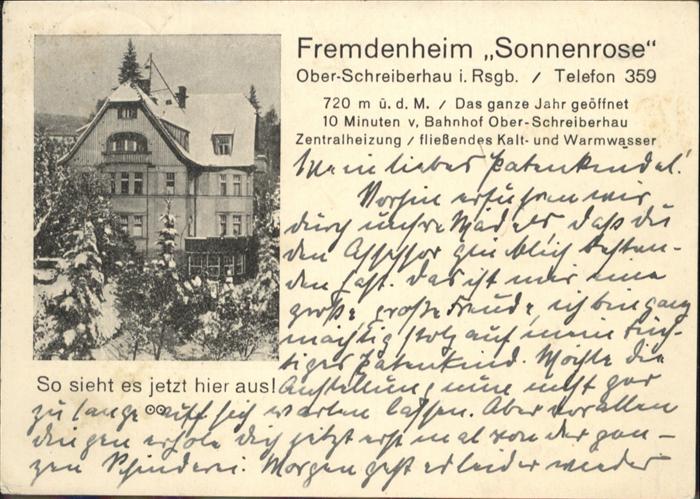 Fremdenheim „Sonnenrose“
Ober-Schreiberhau i. Rsgb. / Telefon 359
720 m ü. d. M. / Das ganze Jahr geöffnet
10 Minuten v. Bahnhof Ober-Schreiberhau
Zentralheizung / fließendes Kalt- und Warmwasser
Mein liebes Patenkindel!
Vorhin erfuhren wir
durch unsre Mädels, daß du
den Assessor glücklich bestan-
den hast. Das ist mir eine
große, große Freude, ich bin ganz
mächtig stolz auf mein tüch-
tiges Patenkind. Möchte die
So sieht es jetzt hier aus! Anstellung nun nicht gar
zu lange auf sich warten lassen. Aber vor allen
Dingen erhole dich jetzt erst mal von der gan-
zen Schinderei. Morgen geht es leider wieder